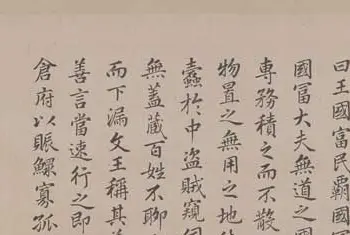 曰王國富民霸國富
國富大夫無道之國
專務積之而不散
物置之無用之地
蠹於中盜賊窺伺
無蓋藏百姓不聊
而下漏文王稱其
善言當速行之即
倉府以賑鰥寡孤